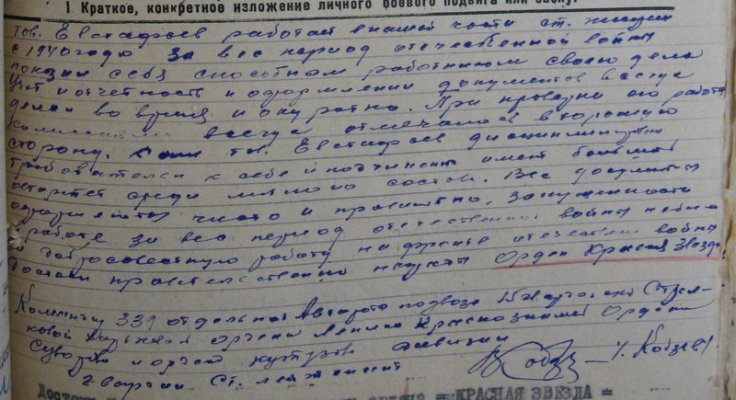 I Краткое, конкретное изложение личного боевого подвига или
Тов. Евстафьев работает в нашей части ст.
с 1940 года за вес период отечественной войны
показал себя способным работником своего дела
Учет и отчетность и оформлении документов всегда
делал во время и окуратно. При проверки его работы
всегда отмечалось в хорошую
сторону. тов. Евстафьев дисциплинирован
требователен к себе и подчиненым имеет большой
авторитет среди личного состава. Все документы
чисто и правильно, запущенности
в работе за вес период отечественной войны небыло
За добросовестную работу на фронте отечествен войны
достоин правительственной награды Орден Красная Звезда
Командир 339 отдельной Авторота подвоза 15 Стрел-
ковой ордена Ленина Краснознамен Орден
Суворова и орден кутузова дивизии
Ст. лейтенант / Кобзев /
КРАСНАЯ ЗВЕЗДА =